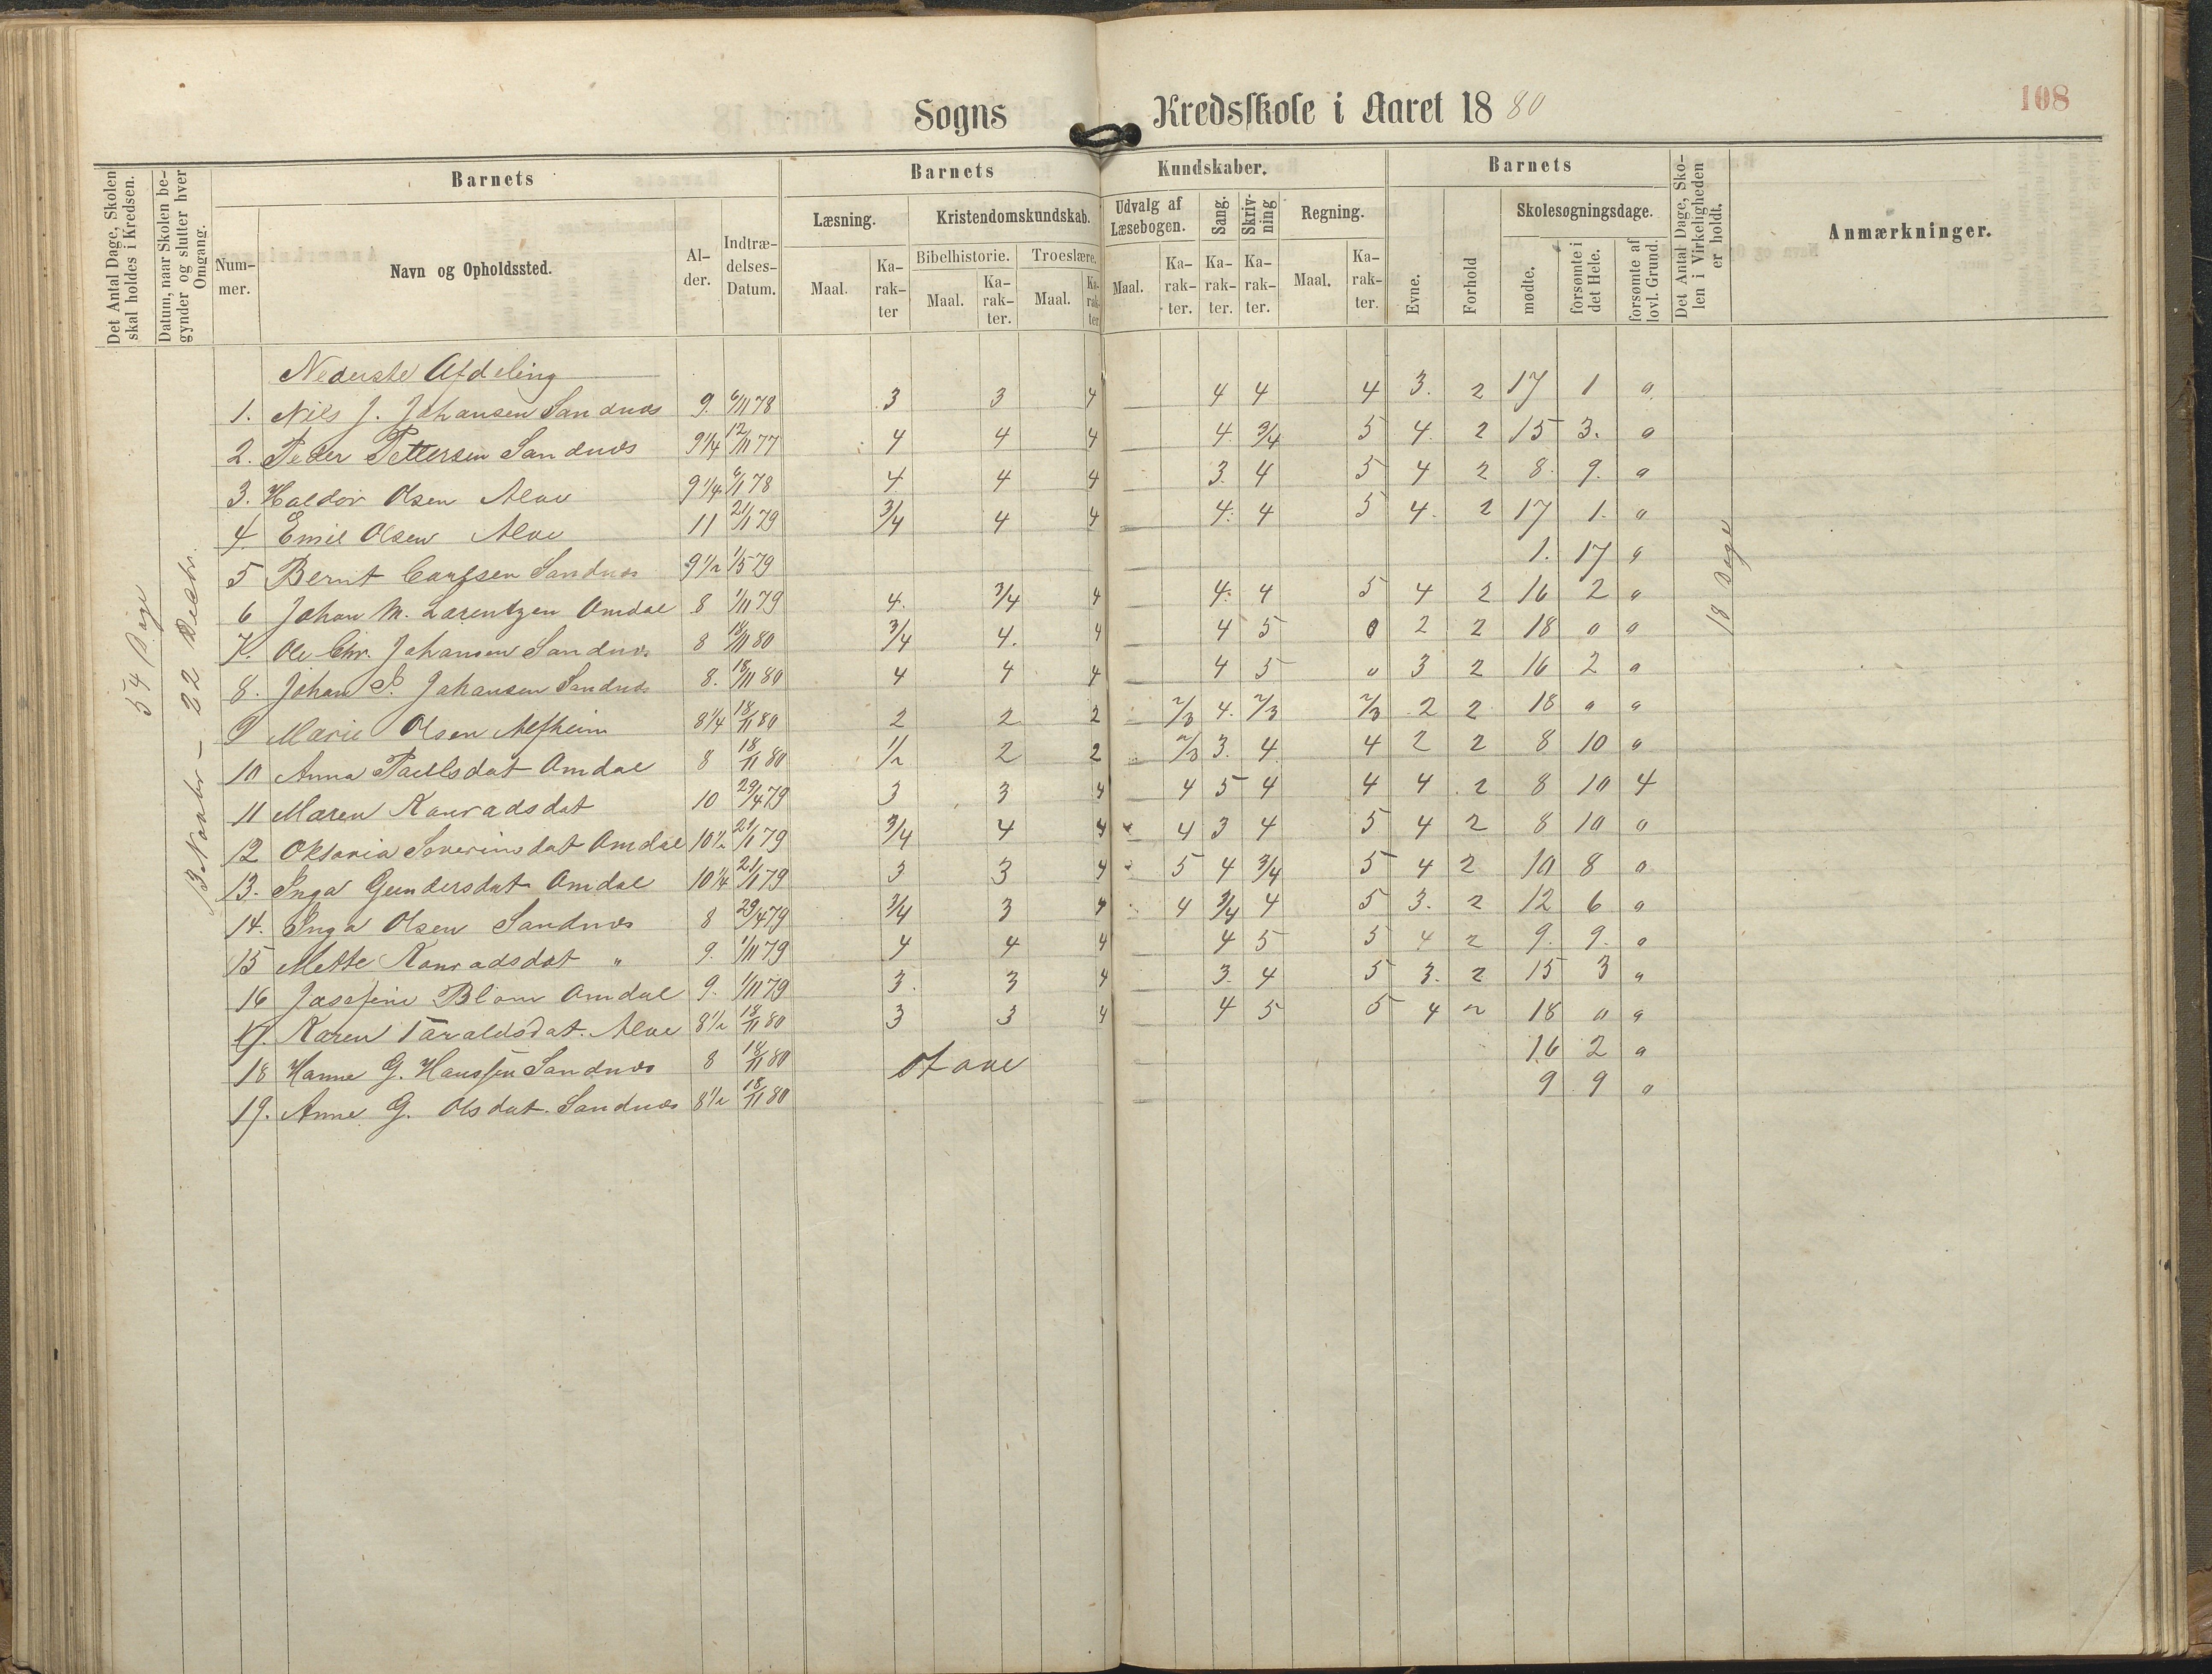 Sogns Kredsskole i Aaret 1880 108
Det Antal Dage, Skolen skal holdes i Kredsen.
Datum, naar Skolen begynder og slutter hver Omgang.
Barnets Barnets Kundskaber. Barnets
Det Antal Dage, Skolen i Virkeligheden er holdt.
Anmærkninger.
Nummer. Navn og Opholdssted. Alder. Indtrædelses-Datum.
Læsning. Kristendomskundskab. Udvalg af Læsebogen. Sang. Skrivning Regning. Skolesøgningsdage.
Bibelhistorie. Troeslære.
Maal. Karakter Maal. Karakter. Maal. Karakter Maal. Karakter. Karakter. Karakter. Maal. Karakter. Evne. Forhold mødte. forsømte i det Hele. forsømte af lovl. Grund.
54 Dage
22 Decbr.
18 Dage
Nederste Afdeling
1. Nils J. Johansen Sandnæs 9. 6/11 78 3 3 4 4 4 4 3. 2 17 1 "
2. Peder Pettersen Sandnæs 9 1/4 12/11 77 4 4 4 4. 3/4 5 4. 2 15 3. "
3. Haldor Olsen Alve 9 1/4 6/11 78 4 4 4 3. 4 5 4 2 8. 9. "
4. Emil Olsen Alve 11 21/1 79 3/4 4 4 4. 4 5 4. 2 17 1. "
5 Bernt Carlsen Sandnæs 9 1/2 1/5 79 1. 17 "
6 Johan M. Larentzen Omdal 8 1/11 79 4. 3/4 4 4. 4 5 4 2 16 2 "
7. Ole Chr. Johansen Sandnæs 8 18/11 80 3/4 4. 4 4 5 0 2 2 18 " "
8. Johan P. Johansen Sandnæs 8. 18/11 80 4 4 4 4 5 " 3 2 16 2 "
9 Marie Olsen Alfheim 8 1/4 18/11 80 2 2 2 2/3 4. 2/3 2/3 2 2 18 " "
10 Anna Paulsdat Omdal 8 18/11 80 1/2 2 2 2/3 3. 4 4 2 2 8 10 "
11 Maren Konradsdat 10 29/4 79 3 3 4 4 5 4 4 4 2 8 10 4
12 Oktavia Severinsdat Omdal 10 1/2 21/1 79 3/4 4 4 4 3 4 5 4 2 8 10 "
13. Inga Gundersdat Omdal 10 1/4 21/1 79 3 3 4 5 4 3/4 5 4 2 10 8 "
14. Inga Olsen Sandnæs 8 29/4 79 3/4 3 4 4 3/4 4 5 3. 2 12 6 "
15 Mette Konradsdat " 9. 1/11 79 4 4 4 4 5 5 4 2 9. 9. "
16 Josefine Blom Omdal 9. 1/11 79 3. 3 4 3. 4 5 3. 2 15 3 "
17. Karen Taraldsdat. Alve 8 1/2 18/11 80 3 3 4 4 5 5 4 2 18 " "
18 Hanne G. Hanssen Sandnæs 8 18/11 80 stave 16 2 "
19. Anne G. Olsdat. Sandnæs 8 1/2 18/11 80 9 9 "